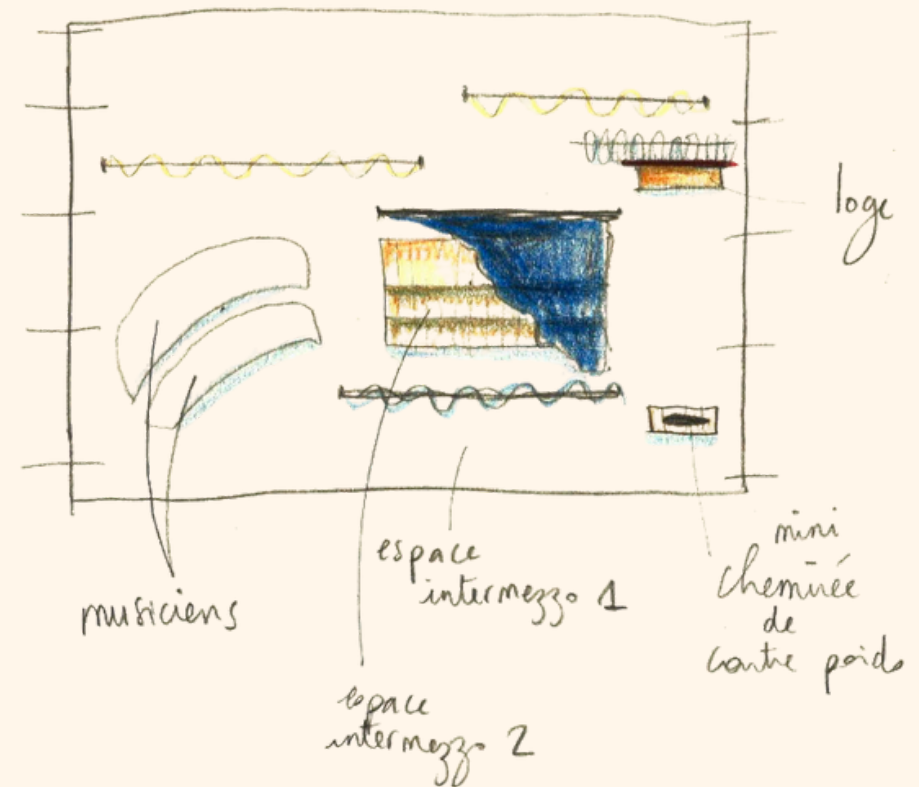 loge
musiciens
espace
intermezzo 1
espace
intermezzo 2
mini
cheminée
de
contre poids